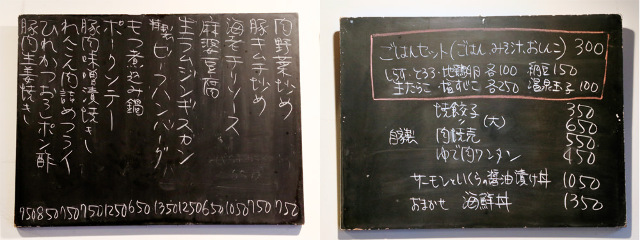 肉野菜炒め 750
豚キムチ炒め 750
海老チリソース 1050
麻婆豆腐 650
生ラムジンギスカン 1250
自家製ビーフハンバーグ 1350
もつ煮込み鍋 650
ポークソテー 1250
豚肉味噌漬焼き 750
れんこん肉詰めフライ 750
ひれかつおろしポン酢 850
豚肉生姜焼き 750
ごはんセット(ごはん、みそ汁、おしんこ) 300
しらす・とろろ・地鶏卵 各100 納豆150
生たらこ・塩すじこ 各250 温泉玉子100
焼餃子 350
(大) 650
自家製 肉焼売 550
ゆで肉ワンタン 450
サーモンといくらの醤油漬け丼 1050
おまかせ 海鮮丼 1350